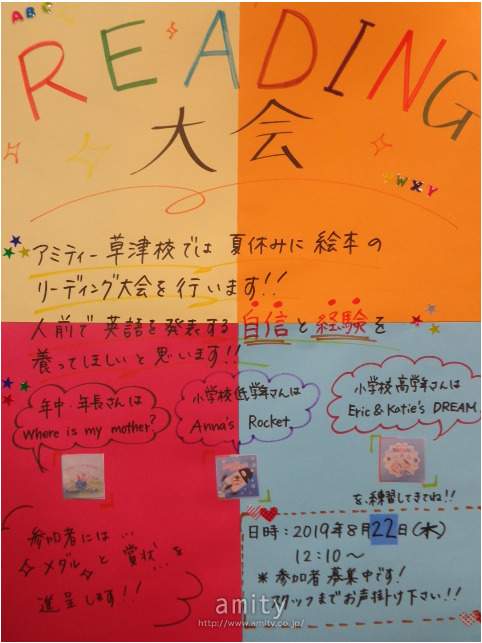 ABC
READING
大会
VWXY
アミティー草津校では 夏休みに 絵本の
リーディング大会を行います!!
人前で 英語を発表する 自信と経験を
養ってほしいと思います!!
年中・年長さんは
Where is my mother?
小学校低学年さんは
Anna's Rocket
小学校高学年さんは
Eric & Katie's DREAM
を、練習してきてね!!
参加者には…
メダルと賞状を
進呈します!!
日時:2019年8月22日(木)
12:10〜
*参加者募集中です!
スタッフまでお声掛け下さい!!
amity
http://www.amity.co.jp/